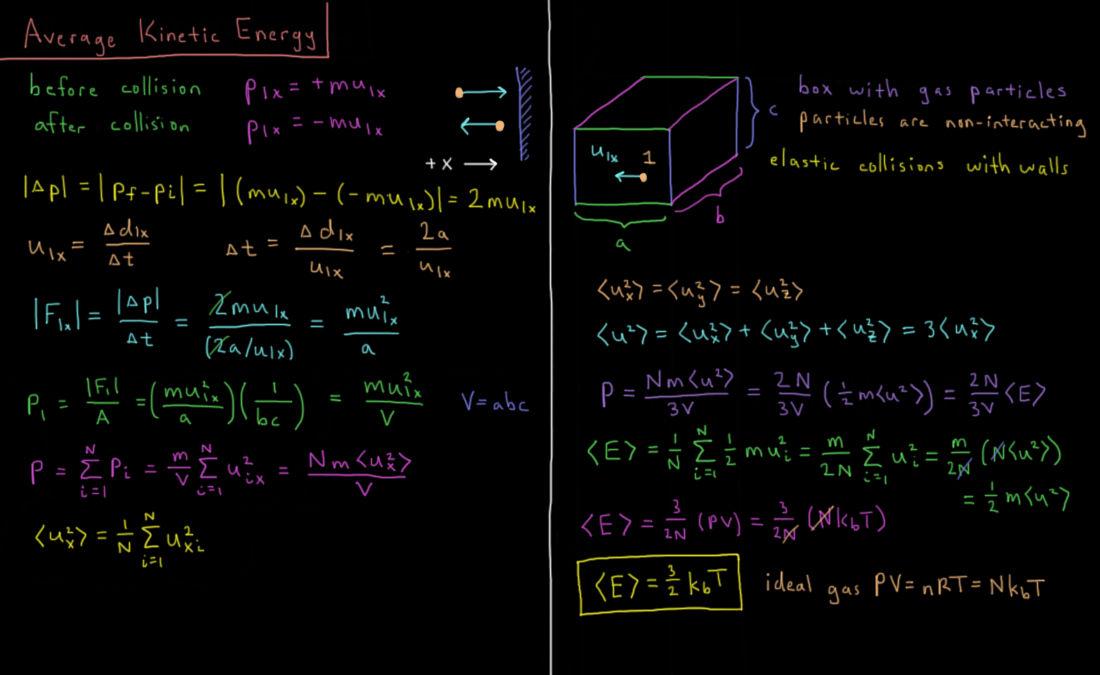 Average Kinetic Energy
before collision p₁ₓ = +mu₁ₓ
after collision p₁ₓ = -mu₁ₓ
+x →
|Δp| = |p_f - p_i| = |(mu₁ₓ) - (-mu₁ₓ)| = 2mu₁ₓ
u₁ₓ = Δd₁ₓ/Δt Δt = Δd₁ₓ/u₁ₓ = 2a/u₁ₓ
|F₁ₓ| = |Δp|/Δt = 2mu₁ₓ/(2a/u₁ₓ) = mu₁ₓ²/a
P₁ = |F₁|/A = (mu₁ₓ²/a)(1/bc) = mu₁ₓ²/V V=abc
P = Σ_{i=1}^{N} P_i = m/V Σ_{i=1}^{N} u_{ix}² = Nm⟨uₓ²⟩/V
⟨uₓ²⟩ = 1/N Σ_{i=1}^{N} u_{xi}²
u₁ₓ 1
a
b
c
box with gas particles
particles are non-interacting
elastic collisions with walls
⟨uₓ²⟩ = ⟨u_y²⟩ = ⟨u_z²⟩
⟨u²⟩ = ⟨uₓ²⟩ + ⟨u_y²⟩ + ⟨u_z²⟩ = 3⟨uₓ²⟩
P = Nm⟨u²⟩/3V = 2N/3V (½m⟨u²⟩) = 2N/3V ⟨E⟩
⟨E⟩ = 1/N Σ_{i=1}^{N} ½ mu_i² = m/2N Σ_{i=1}^{N} u_i² = m/2N (N⟨u²⟩)
= ½m⟨u²⟩
⟨E⟩ = 3/2N (PV) = 3/2N (Nk_bT)
⟨E⟩ = 3/2 k_bT ideal gas PV = nRT = Nk_bT